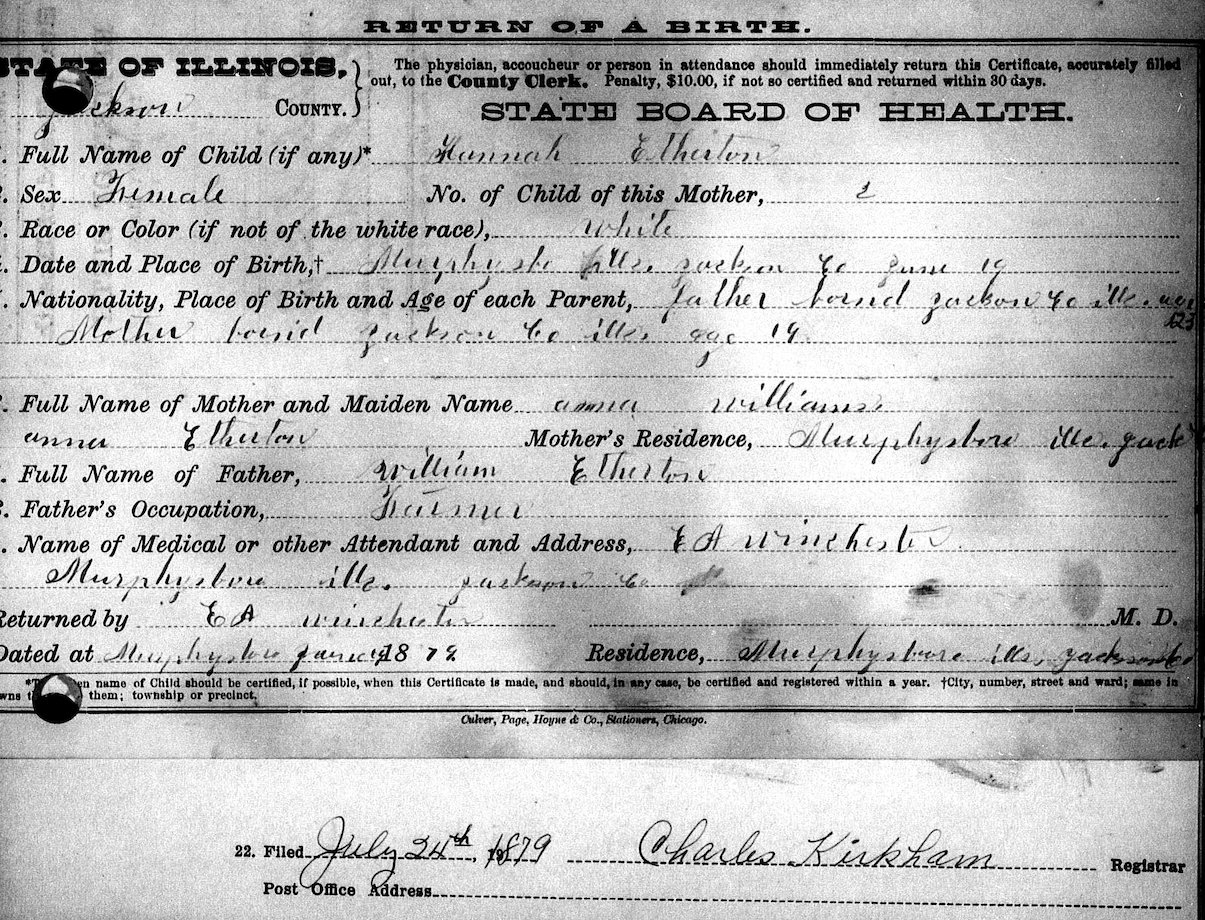 RETURN OF A BIRTH.
STATE OF ILLINOIS,
The physician, accoucheur or person in attendance should immediately return this Certificate, accurately filled
out, to the County Clerk. Penalty, $10.00, if not so certified and returned within 30 days.
Jackson COUNTY.
STATE BOARD OF HEALTH.
Full Name of Child (if any)* Hannah Etherton
Sex Female No. of Child of this Mother, 2
Race or Color (if not of the white race), white
Date and Place of Birth,† Murphysbo Ills. Jackson Co June 19
Nationality, Place of Birth and Age of each Parent, father bornd Jackson Co ills. age
23
Mother bornd Jackson Co ills age 19
Full Name of Mother and Maiden Name anna williams
anna Etherton Mother's Residence, Murphysboro ills. Jack
Full Name of Father, William Etherton
Father's Occupation, Farmer
Name of Medical or other Attendant and Address, E A Winchester
Murphysboro ills. Jackson Co
Returned by E A Winchester M. D.
Dated at Murphysboro 1879 Residence, Murphysboro ills, Jackson Co
name of Child should be certified, if possible, when this Certificate is made, and should, in any case, be certified and registered within a year. †City, number, street and ward; same in
them; township or precinct.
Culver, Page, Hoyne & Co., Stationers, Chicago.
22. Filed July 24th, 1879 Charles Kirkham Registrar
Post Office Address